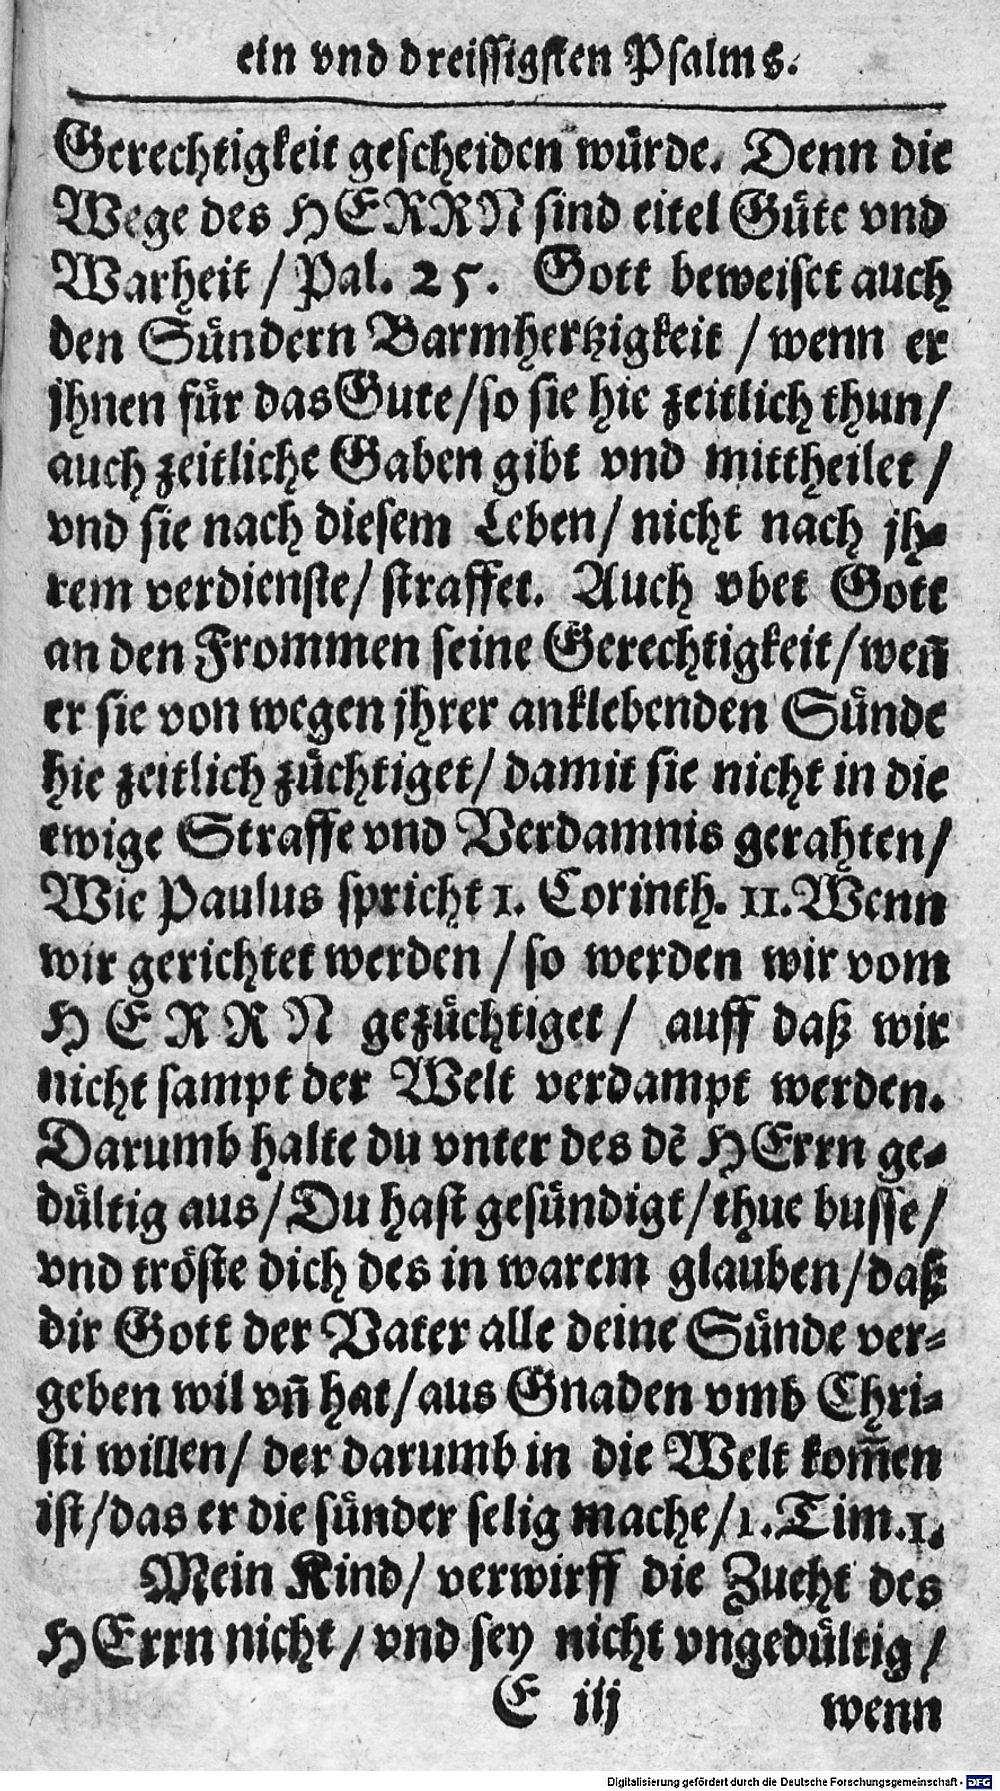 ein vnd dreissigsten Psalms.
Gerechtigkeit gescheiden würde. Denn die
Wege des HERRN sind eitel Güte vnd
Warheit / Psal. 25. Gott beweiset auch
den Sündern Barmhertzigkeit / wenn er
jhnen für das Gute / so sie hie zeitlich thun /
auch zeitliche Gaben gibt vnd mittheilet /
vnd sie nach diesem Leben / nicht nach jh-
rem verdienste / straffet. Auch vbet Gott
an den Frommen seine Gerechtigkeit / weñ
er sie von wegen jhrer anklebenden Sünde
hie zeitlich züchtiget / damit sie nicht in die
ewige Straffe vnd Verdamnis gerahten /
Wie Paulus spricht 1. Corinth. 11. Wenn
wir gerichtet werden / so werden wir vom
HERRN gezüchtiget / auff daß wir
nicht sampt der Welt verdampt werden.
Darumb halte du vnter des dẽ HErrn ge-
dültig aus / Du hast gesündigt / thue busse /
vnd tröste dich des in warem glauben / daß
dir Gott der Vater alle deine Sünde ver-
geben wil vñ hat / aus Gnaden vmb Chri-
sti willen / der darumb in die Welt kom̃en
ist / das er die sünder selig mache / 1. Tim. 1.
Mein Kind / verwirff die Zucht des
HErrn nicht / vnd sey nicht vngedültig /
E iij
wenn
Digitalisierung gefördert durch die Deutsche Forschungsgemeinschaft - DFG